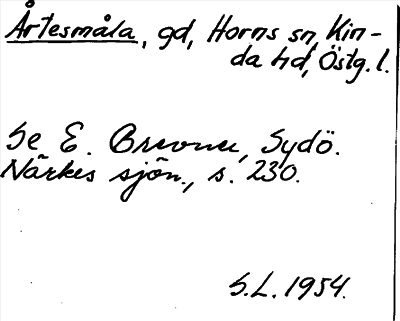 Årtesmåla, gd, Horns sn, Kin-
da hd, Östg. l.
Se E. Brevner, Sydö.
Närkes sjön., s. 230.
S.L. 1954.